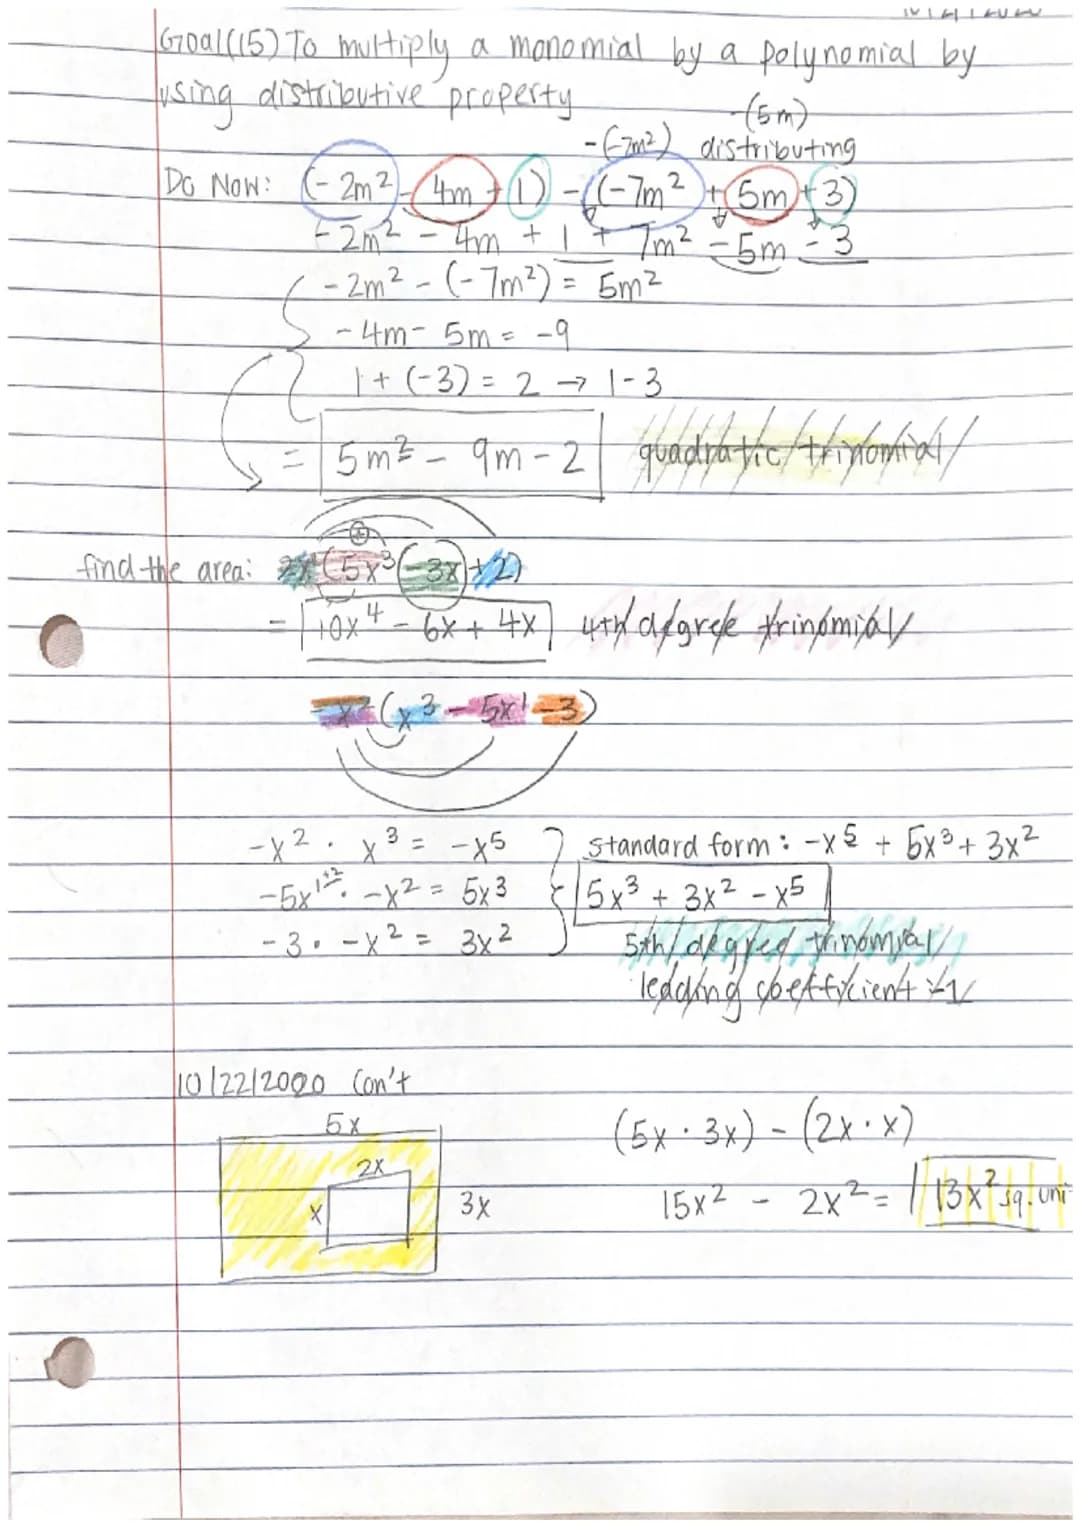 Goal(15) To multiply a monomial by a polynomial by
using distributive property
-(5m)
-(-7m²) distributing
Do Now: (-2m² - 4m + 1) - (-7m² + 5m + 3)
-2m² - 4m + 1 + 7m² - 5m - 3
-2m² - (-7m²) = 5m²
-4m - 5m = -9
1 + (-3) = 2 → 1-3
= 5m² - 9m - 2 quadratic trinomial
find the area: 2x (5x³ - 3x + 2)
= 10x⁴ - 6x + 4x 4th degree trinomial
-x² (x³ - 5x¹ - 3)
-x² · x³ = -x⁵ standard form: -x⁵ + 5x³ + 3x²
-5x¹⁺² · -x² = 5x³ 5x³ + 3x² - x⁵
-3 · -x² = 3x² 5th degree trinomial
leading coefficient: -1
10/22/2020 Con't
5x (5x · 3x) - (2x · x)
2x
x 3x 15x² - 2x² = 13x² sq. uni